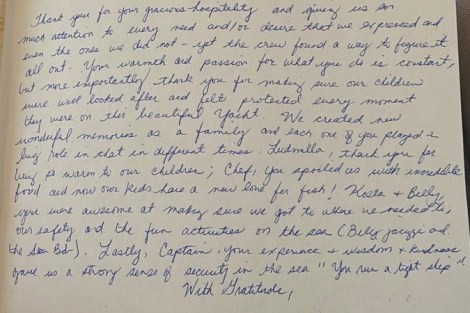 Thank you for your gracious hospitality and giving us so
much attention to every need and/or desire that we expressed and
even the ones we did not - yet the crew found a way to figure it
all out. Your warmth and passion for what you do is constant,
but more importantly thank you for making sure our children
were well looked after and felt protected every moment
they were on this beautiful Yacht. We created new
wonderful memories as a family and each one of you played a
big role in that in different times. Ludmilla, thank you for
being so warm to our children; Chef, you spoiled us with incredible
food and now our kids have a new love for fish! Kosta & Billy,
you were awesome at making sure we got to where we needed to,
our safety and the fun activities on the sea (Billy jacuzzi and
the Sea Bob). Lastly, Captain, your experience & wisdom & kindness
gave us a strong sense of security in the sea "You run a tight ship".
With Gratitude,